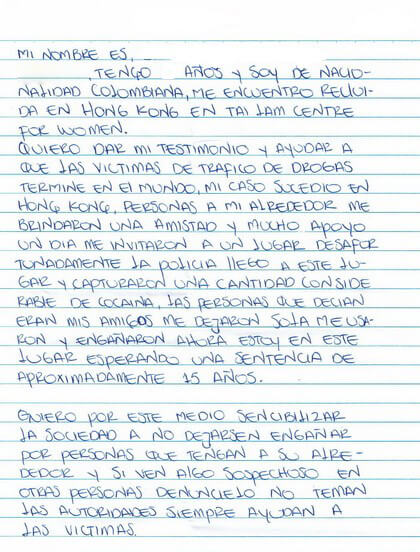 MI NOMBRE ES,
, TENGO AÑOS Y SOY DE NACIO-
NALIDAD COLOMBIANA, ME ENCUENTRO RECLUI-
DA EN HONG KONG EN TAI LAM CENTRE
FOR WOMEN.
QUIERO DAR MI TESTIMONIO Y AYUDAR A
QUE LAS VICTIMAS DE TRAFICO DE DROGAS
TERMINE EN El MUNDO, MI CASO SUCEDIO EN
HONG KONG, PERSONAS A MI ALREDEDOR ME
BRINDARON UNA AMISTAD Y MUCHO APOYO
UN DIA ME INVITARON A UN LUGAR DESAFOR
TUNADAMENTE LA POLICIA LLEGO A ESTE LU-
GAR Y CAPTURARON UNA CANTIDAD CONSIDE
RABLE DE COCAINA, LAS PERSONAS QUE DECIAN
ERAN MIS AMIGOS ME DEJARON SOLA ME USA-
RON Y ENGAÑARON AHORA ESTOY EN ESTE
LUGAR ESPERANDO UNA SENTENCIA DE
APROXIMADAMENTE 15 AÑOS.
QUIERO POR ESTE MEDIO SENCIBILIZAR
LA SOCIEDAD A NO DEJARSEN ENGAÑAR
POR PERSONAS QUE TENGAN A SU ALRE-
DEDOR Y SI VEN ALGO SOSPECHOSO EN
OTRAS PERSONAS DENUNCIELO NO TEMAN
LAS AUTORIDADES SIEMPRE AYUDAN A
LAS VICTIMAS.